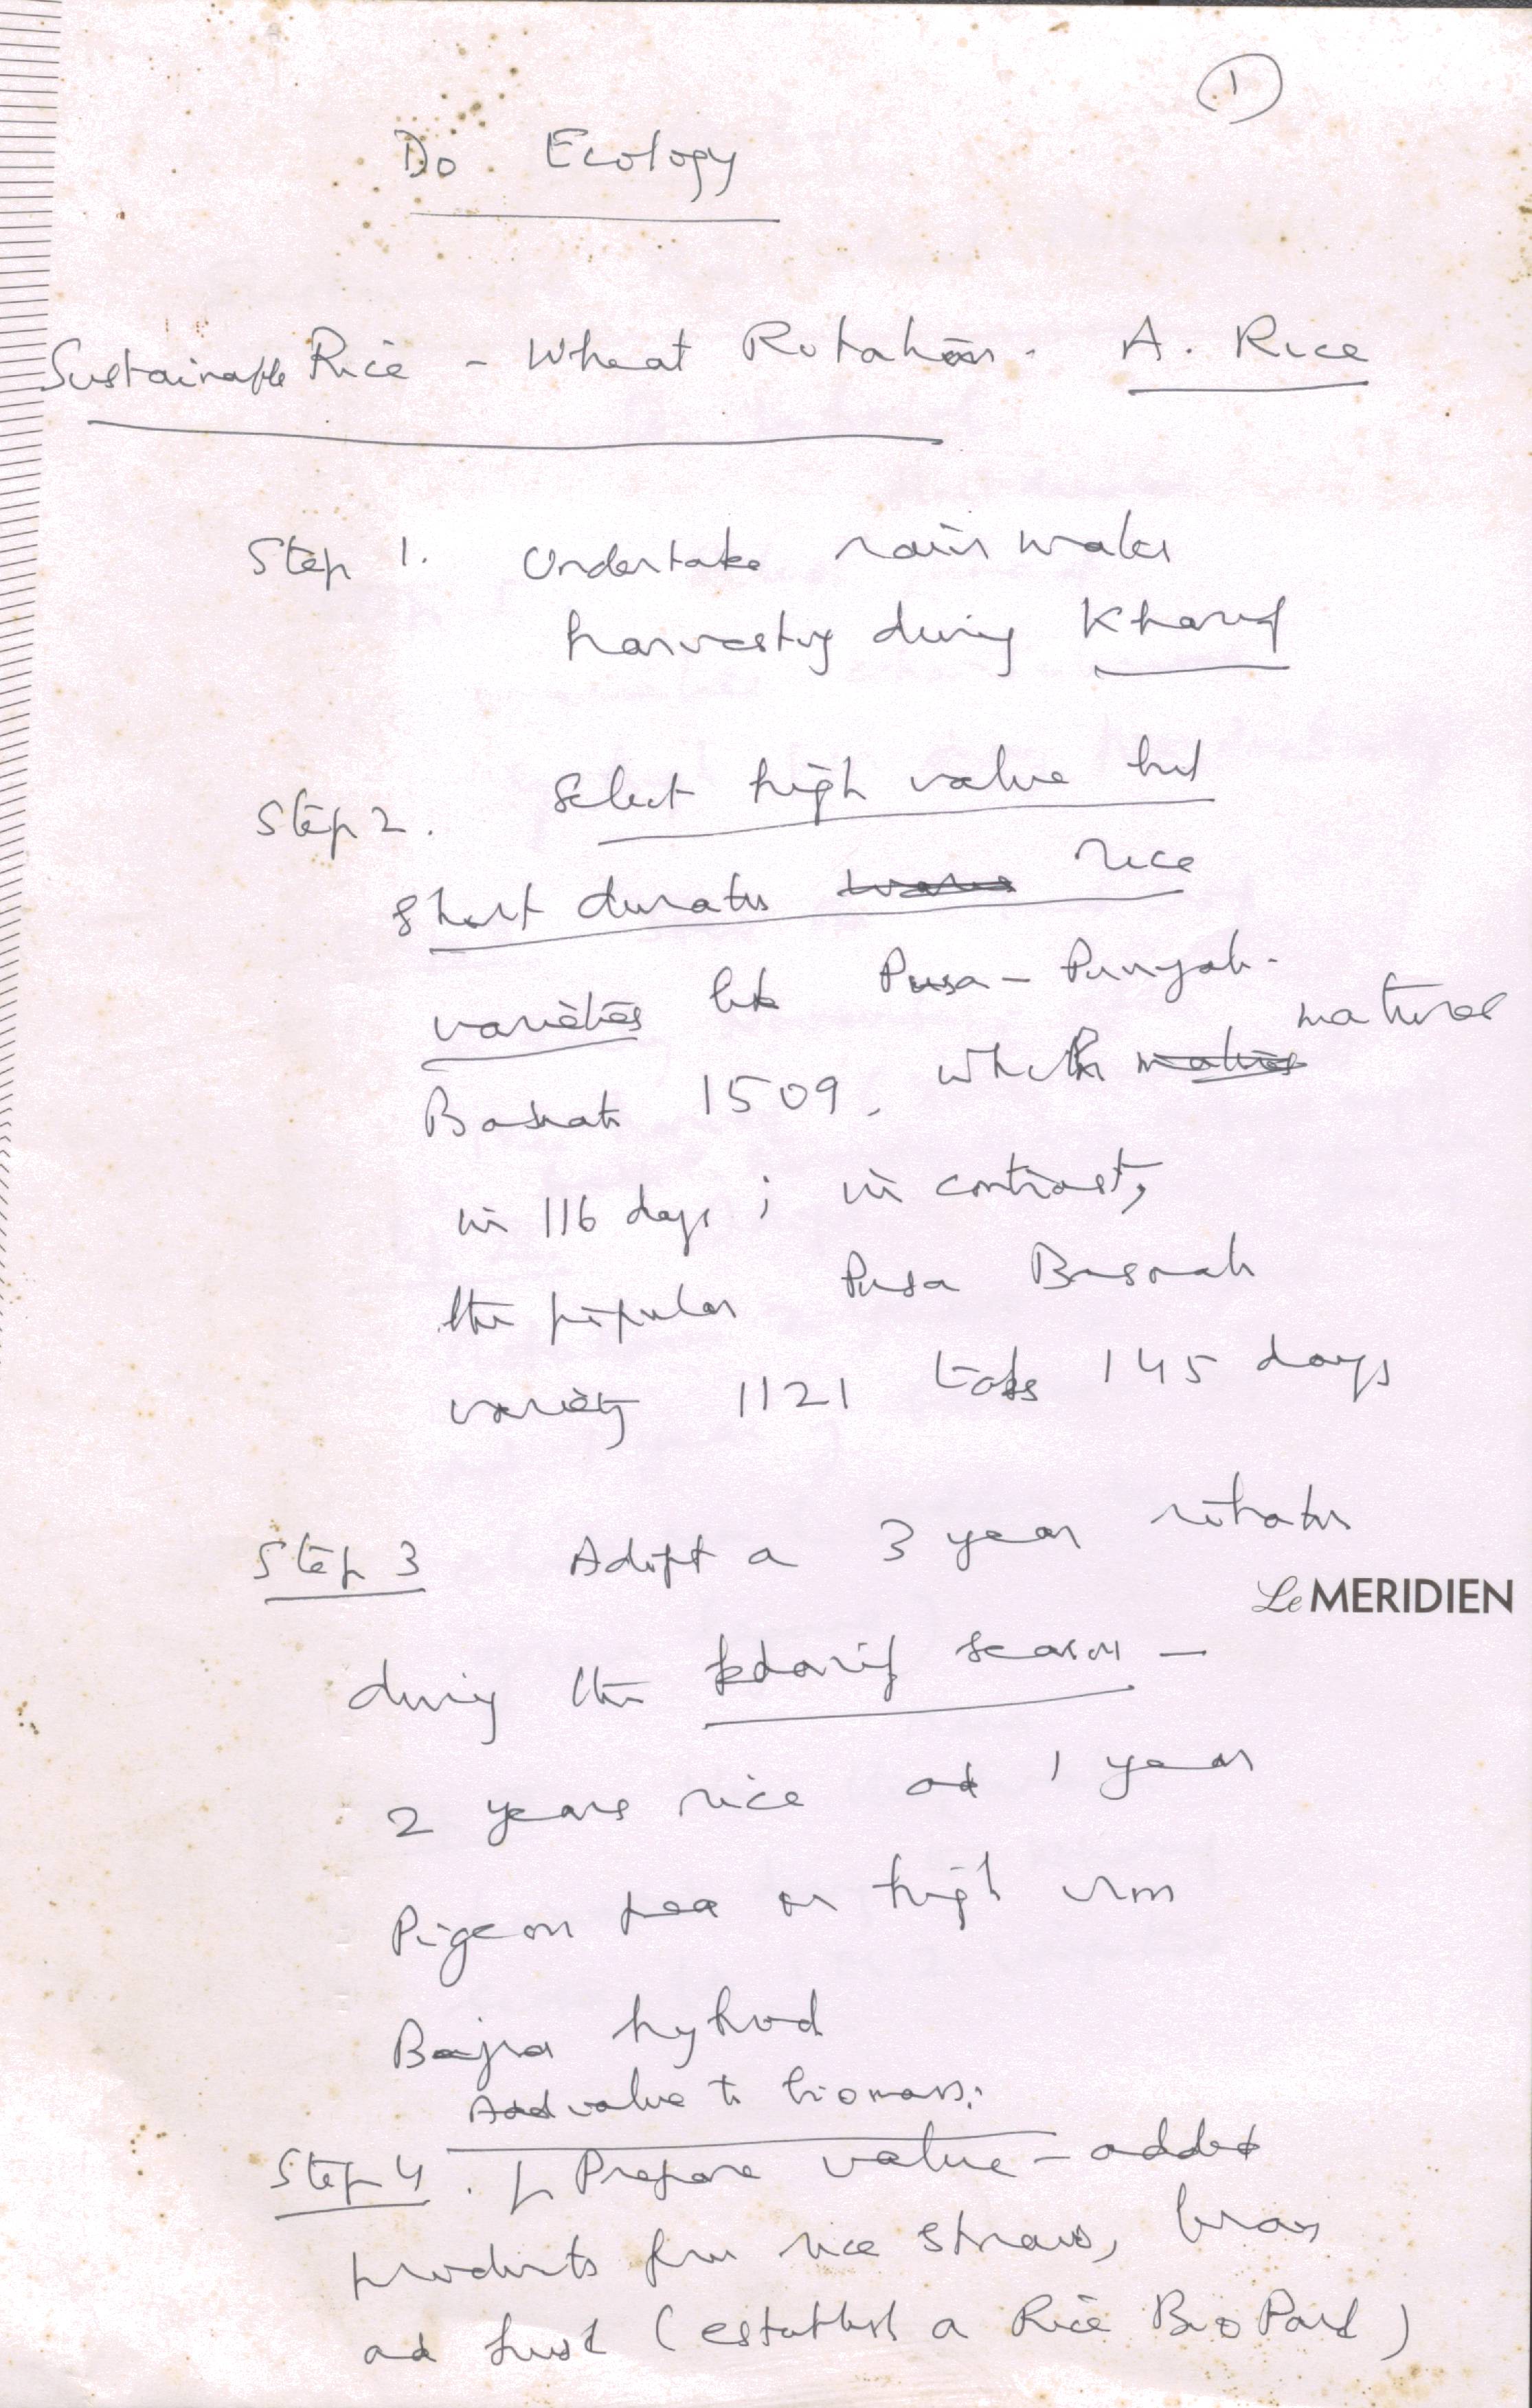 1
Do Ecology
Sustainable Rice - Wheat Rotation. A. Rice
Step 1. Undertake rain water
harvesting during Kharif
Step 2. Select high value but
short duration rice
varieties like Pusa - Punjab -
matures
Basmati 1509, which
in 116 days ; in contrast,
the popular Pusa Basmati
variety 1121 takes 145 days
Step 3 Adopt a 3 year rotation
Le MERIDIEN
during the kharif season -
2 years rice and 1 year
Pigeon pea or high iron
Bajra hybrid
Add value to biomass:
Step 4. Prepare value - added
products from rice straw, bran
and husk (establish a Rice Bio Park)